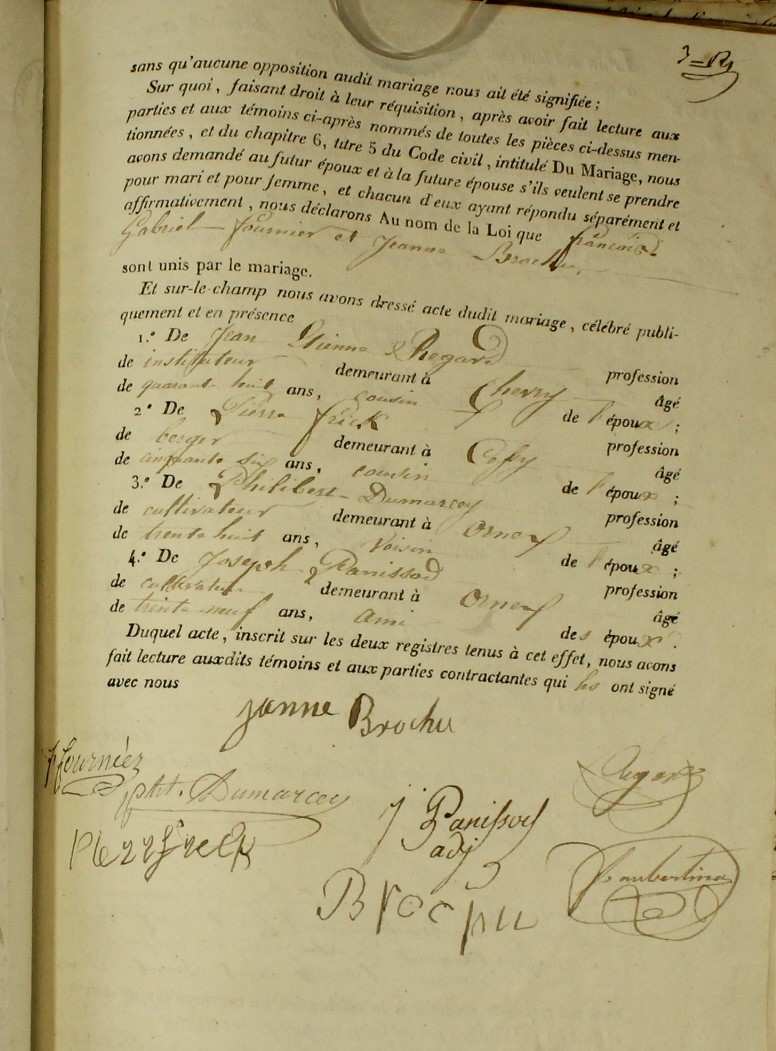 sans qu'aucune opposition audit mariage nous ait été signifiée ;
Sur quoi, faisant droit à leur réquisition, après avoir fait lecture aux
parties et aux témoins ci-après nommés de toutes les pièces ci-dessus men-
tionnées, et du chapitre 6, titre 5 du Code civil, intitulé Du Mariage, nous
avons demandé au futur époux et à la future épouse s'ils veulent se prendre
pour mari et pour femme, et chacun d'eux ayant répondu séparément et
affirmativement, nous déclarons Au nom de la Loi que françois
Gabriel fournier et Jeanne Brochu
sont unis par le mariage.
Et sur-le-champ nous avons dressé acte dudit mariage, célébré publi-
quement et en présence
1.º De Jean Etienne profession
de instituteur demeurant à Chevry âgé
de quarante huit ans, cousin de l'époux ;
2º De Pierre frick profession
de berger demeurant à Cessy âgé
de cinquante six ans, cousin de l'époux ;
3.º De Philibert Dumarcey profession
de cultivateur demeurant à Ornex âgé
de trente huit ans, voisin de l'époux ;
4.º De Joseph Panissod profession
de cultivateur demeurant à Ornex âgé
de trente neuf ans, ami des époux.
Duquel acte, inscrit sur les deux registres tenus à cet effet, nous avons
fait lecture auxdits témoins et aux parties contractantes qui ont signé
avec nous
janne Brochu
fournier
pht. Dumarcey
j Panissod
adj
Brochu